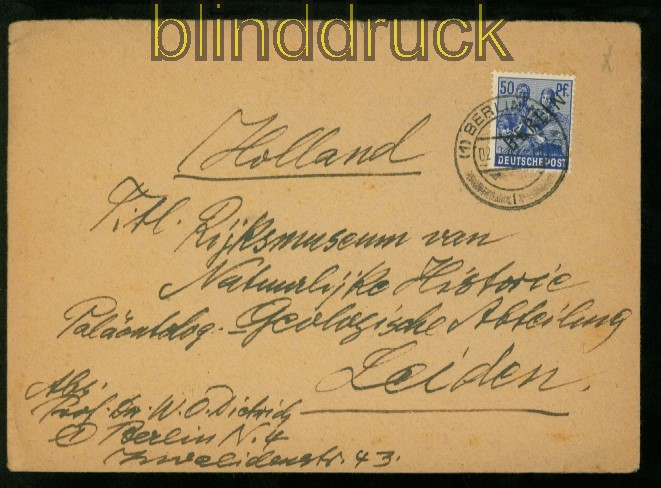 blinddruck
50 Pf.
BERLIN
DEUTSCHE POST
(1) BERLIN
02
Holland
Titl. Rijksmuseum van
Natuurlijke Historie
Paläontolog.-Geologische Abteilung
Leiden.
Abs.
Prof. Dr. W. O. Dietrich
Berlin N. 4
Invalidenstr. 43.